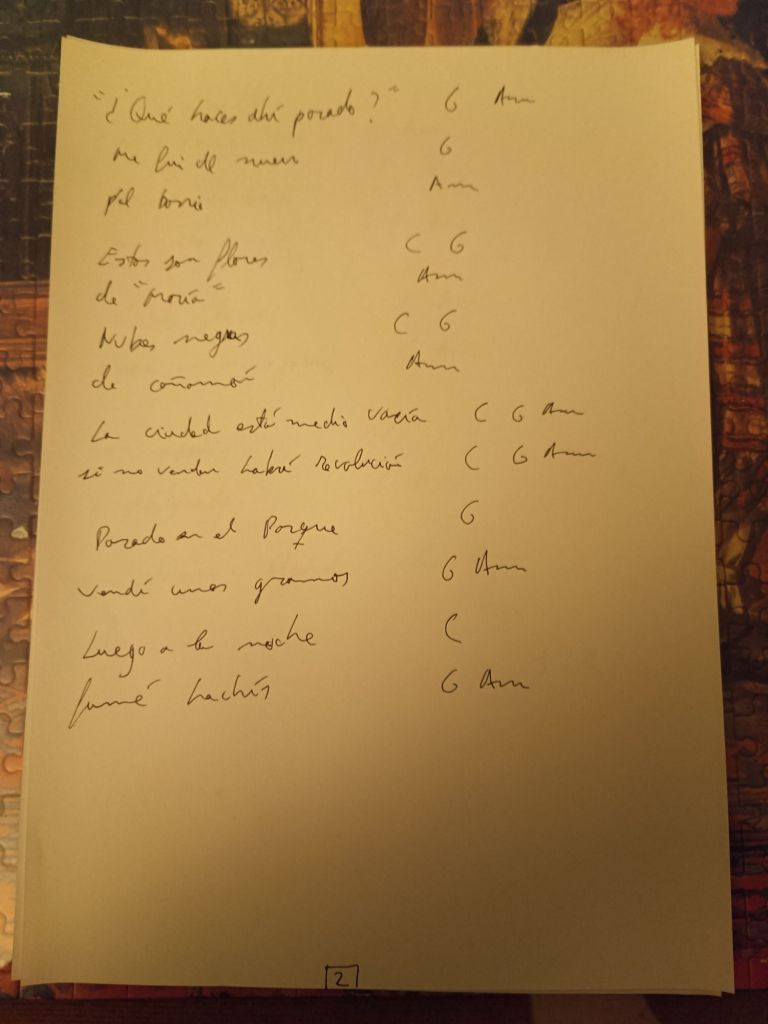 "¿Qué haces ahí parado?" G Am
Me fui de nuevo G
p'al barrio Am
Estas son flores C G
de "María" Am
Nubes negras C G
de cañamón Am
La ciudad está medio vacía C G Am
si no venden habrá revolución C G Am
Parado en el Parque G
vendí unos gramos G Am
Luego a la noche C
fumé hachís G Am
2